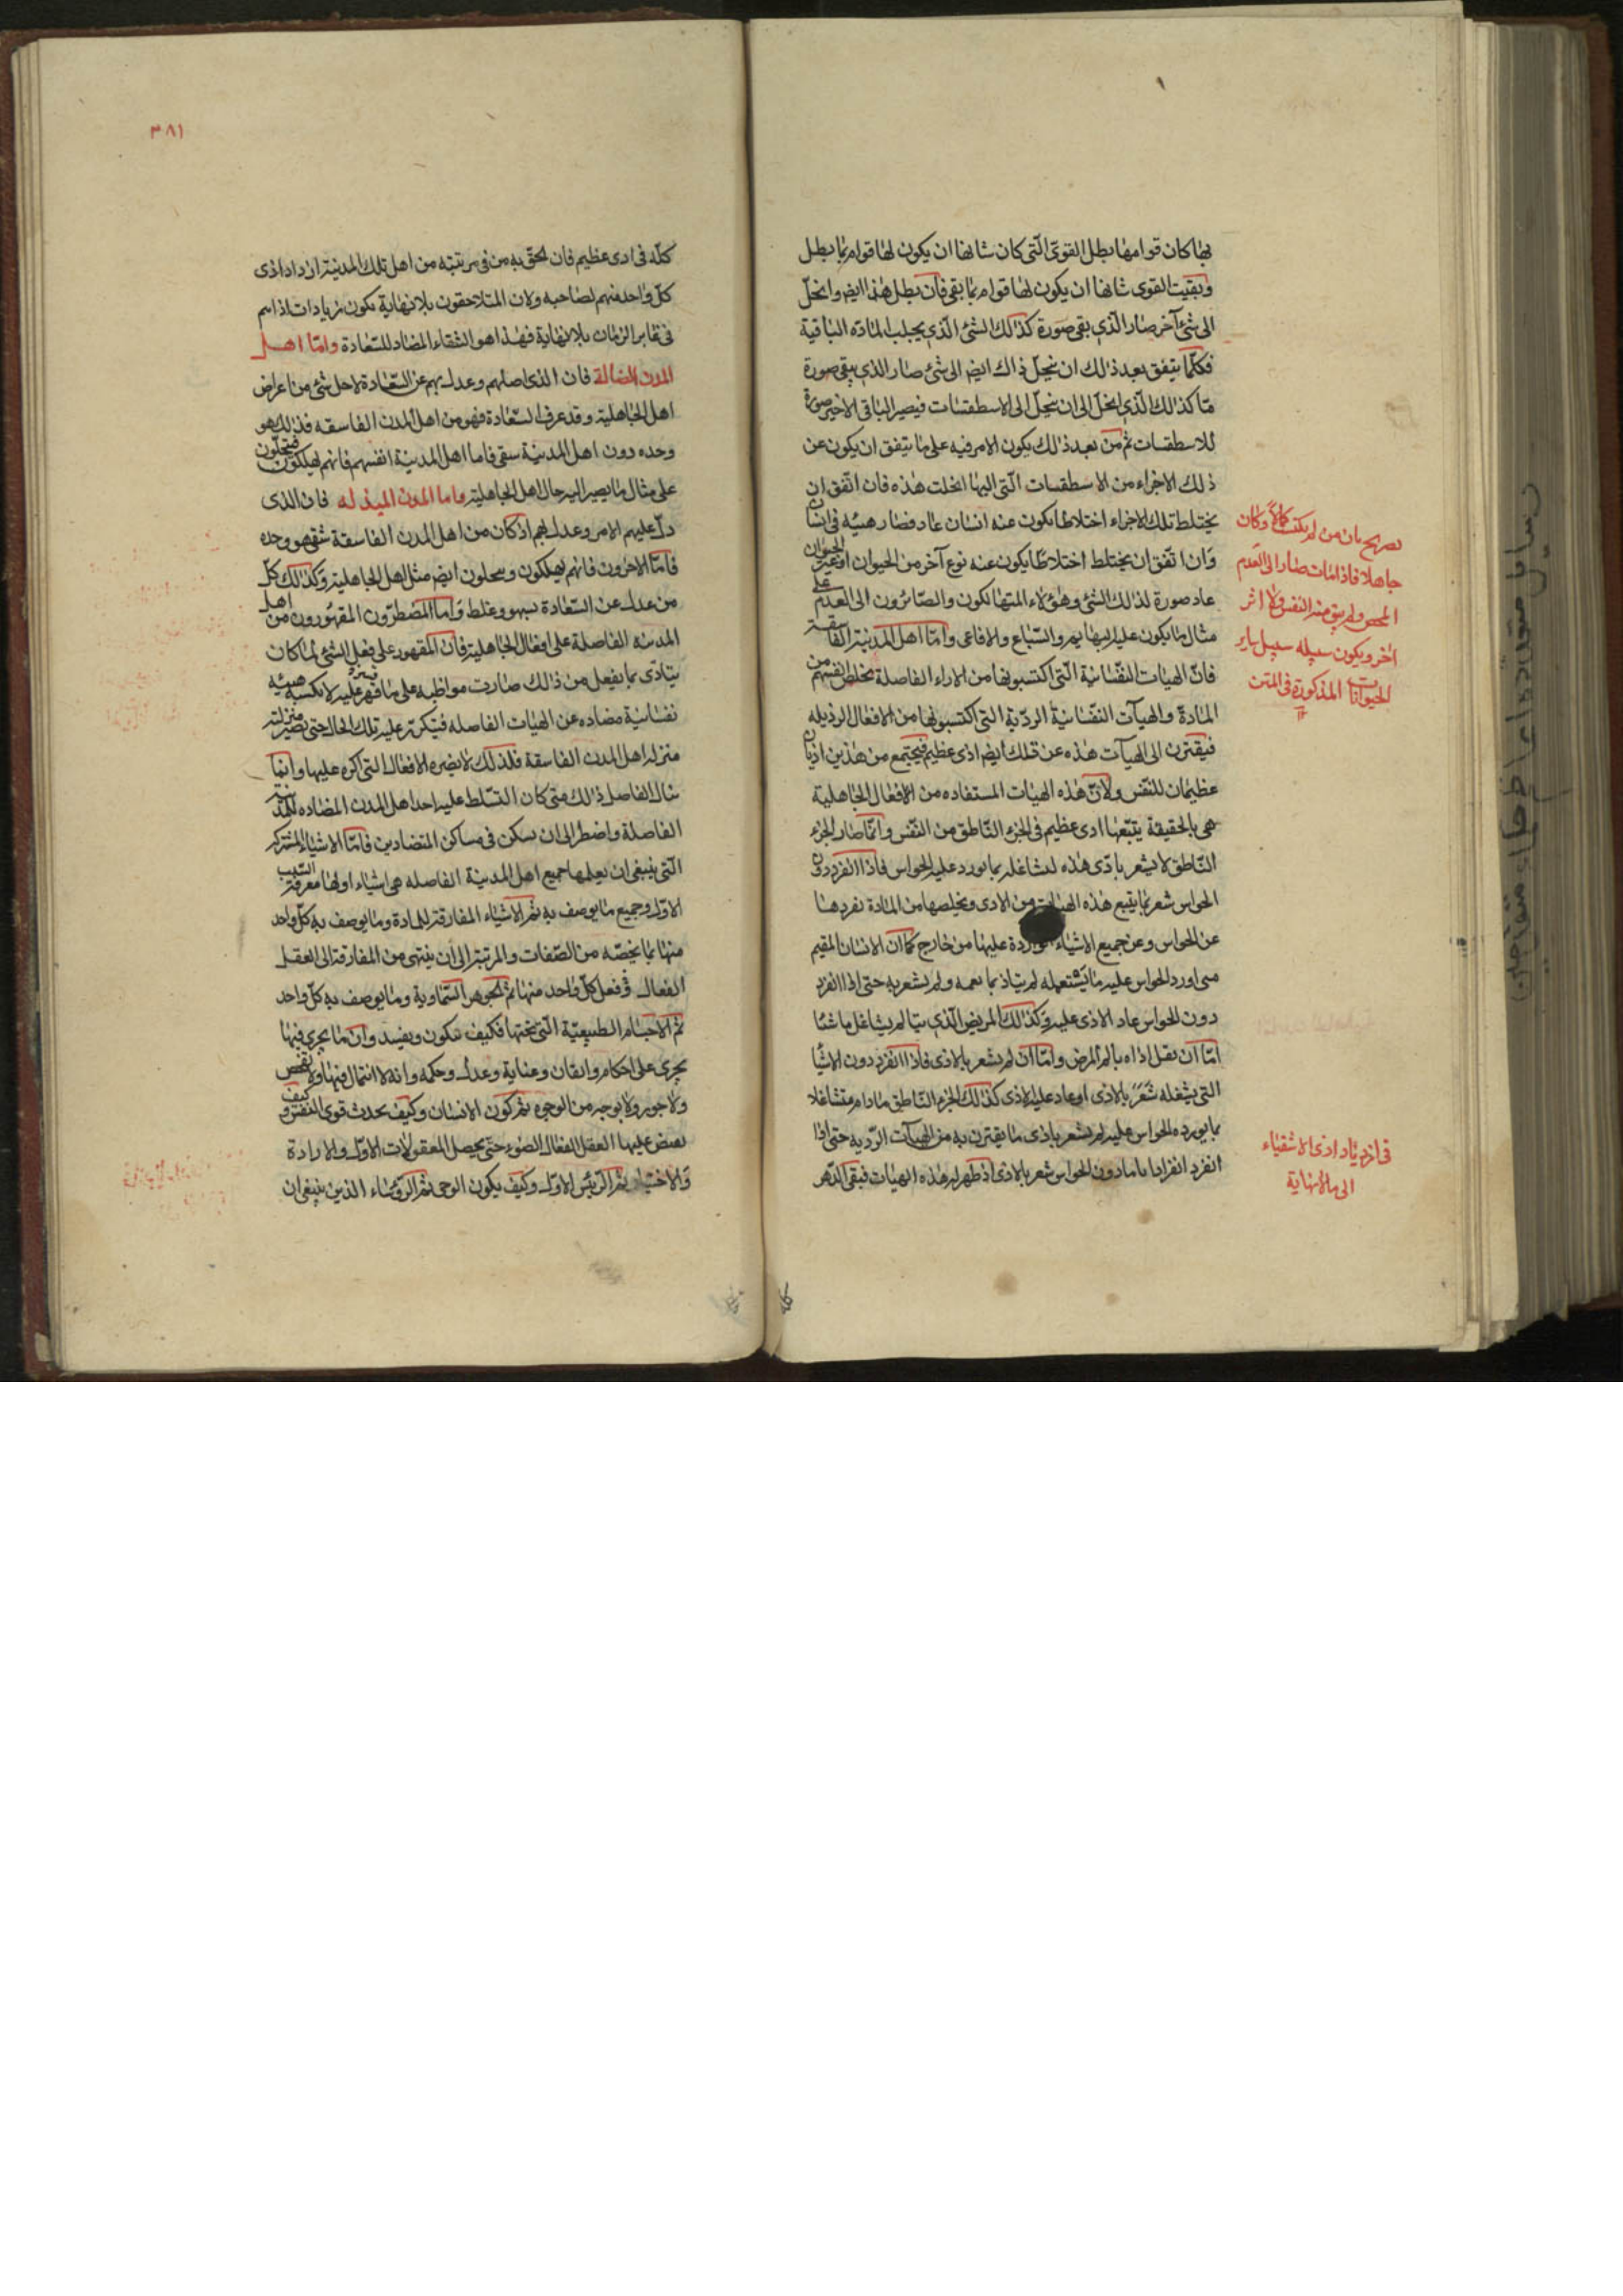 بها كان قوامها بطل القوى التى كان شانها ان يكون لها قوام بما بطل
وبقيت القوى شانها ان يكون لها قوام بما بقى فان بطل هذا ايضا وانحلّ
الى شئ آخر صار الّذى بقى صورة كذلك الشئ الّذى يجلب المادّه الباقية
فكلّما يتفق بعد ذلك ان ينحلّ ذاك ايض الى شئ صار الذى يبقى صورة
مّا كذلك الّذى انحلّ الى ان ينحلّ الى الاسطقسات فيصير الباقى الاخير صورة
للاسطقسات ثم من بعد ذلك يكون الامر فيه على ما يتفق ان يكون عن
ذلك الاجزاء من الاسطقسات الّتى اليها انحلت هذه فان اتّفق ان
يختلط تلك الاجزاء اختلاطا يكون عنه انسان عاد فصار هيئه فى انسان
وان اتّفق ان يختلط اختلاطًا يكون عنه نوع آخر من الحيوان او غير الحيوان
عاد صورة لذلك الشئ وهؤلاء المتهالكون والصّائرون الى العدم على
مثال ما يكون عليه البهايم والسّباع والافاعى وامّا اهل المدينة الفاسقة
فانّ الهيات النفسانية الّتى اكتسبوها من الاراء الفاضلة يخلص انفسهم من
المادة والهيآت النفسانية الردّية التى اكتسبوها من الافعال الرذيله
فيقترن الى الهيآت هذه عن تلك ايض اذى عظيم فيجتمع من هذين اذيان
عظيمان للنّفس ولانّ هذه الهيات المستفاده من الافعال الجاهلية
هى بالحقيقة يتبّعها اذى عظيم فى الجزء النّاطق من النّفس وانّما صار الجزء
النّاطق لا يشعر باذى هذه لتشاغله بما يورد عليه الحواس فاذا انفرد دون
الحواس شعر بما يتبع هذه الهيات من الاذى ويخلصها من المادة يفردها
عن الحواس وعن جميع الاشياء الواردة عليها من خارج كما ان الانسان المقيم
متى اورد الحواس عليه ما يشتعمله لم يتاذ بما يعمه ولم يشعر به حتى اذا انفرد
دون الحواس عاد الاذى عليه وكذلك المريض الّذى يتالم يشاغل ما شئا
امّا ان يقل اذاه بالم المرض وامّا ان لم يشعر بالاذى فاذا انفرد دون الاشيا
التى يشغله شعر بالاذى او عاد عليه الاذى كذلك الجزء النّاطق ما دام متشاغلا
بما يورده الحواس عليه لم يشعر باذى ما يقترن به من الهيآت الرّديه حتى اذا
انفرد انفرادا تاما دون الحواس شعر بالاذى اذ ظهر له هذه الهيات فبقى الدّهر
تصريح بان من لم يكن كاملًا وكان
جاهلا فاذا مات صار الى العدم
المحض ولم يبق منه النفس ولا اثر
آخر ويكون سبيله سبيل ساير
الحيوانات المذكورة فى المتن
١٢
فى ازدياد اذى الاشقياء
الى مالانهاية
٣٨١
كلّه فى اذى عظيم فان لحق به من فى مرتبته من اهل تلك المدينة ازداد اذى
كلّ واحد منهم لصاحبه ولان المتلاحقون بلا نهاية يكون زيادات اذاهم
فى غابر الزمان بلا نهاية فهذا هو الشقاء المضاد للسّعادة وامّا اهل
المدن الضالة فان الذى اضلهم وعدل بهم عن السّعادة لاجل شئ من اعراض
اهل الجاهلية وقد عرف السّعادة فهو من اهل المدن الفاسقه فذلك هو
وحده دون اهل المدينة سقى فاما اهل المدينة انفسهم فانهم يهلكون فيحلّون
على مثال ما يصير اليه حال اهل الجاهلية واما المدن المبدله فان الذى
دلّ عليهم الامر وعدل بهم اذ كان من اهل المدن الفاسقة شقى هو وحده
فامّا الآخرون فانهم يهلكون وينحلون ايض مثل اهل الجاهلية وكذلك كلّ
من عدل عن السّعادة بسهو وغلط وامّا المضطرّون المقهورون من اهل
المدينه الفاضلة على افعال الجاهلية فان المقهور على فعل الشئ لما كان
يتاذّى بما يفعل من ذلك صارت مواظبه على ما قسر عليه لا يكسبه هيئه
نفسانية مضاده عن الهيات الفاضله فيتكرّر عليه تلك الحال حتى يصير منزلته
منزله اهل المدن الفاسقة فلذلك لا يضره الافعال التى اكره عليها وانما
ينال الفاضل ذلك متى كان التسّلط عليه احد اهل المدن المضاده للمدينة
الفاضلة واضطر الى ان يسكن فى مساكن المتضادين فامّا الاشياء المشتركه
الّتى ينبغى ان يعلمها جميع اهل المدينة الفاضله هى اشياء اولها معرفة السّبب
الاوّل وجميع ما يوصف به ثم الاشياء المفارقة للمادة وما يوصف به كلّ واحد
منها بما يخصّه من الصّفات والمرتبة الى ان ينتهى من المفارقة الى العقل
الفعال وفعل كلّ واحد منها ثم الجوهر السّماوية وما يوصف به كلّ واحد
ثم الاجسام الطبيعيّة الّتى تحتها فكيف يتكون ويفسد وان ما يجرى فيها
يجرى على احكام واتقان وعناية وعدل وحكمه وانه لا اهمال فيها ولا نقص
ولا جور ولا بوجه من الوجوه ثم كون الانسان وكيف يحدث قوى النفس وكيف
يفيض عليها العقل الفعال الضوء حتى يحصل المعقولات الاول والارادة
والاختيار ثم الرّئيس الاوّل وكيف يكون الوحى ثم الرؤساء الذين ينبغى ان